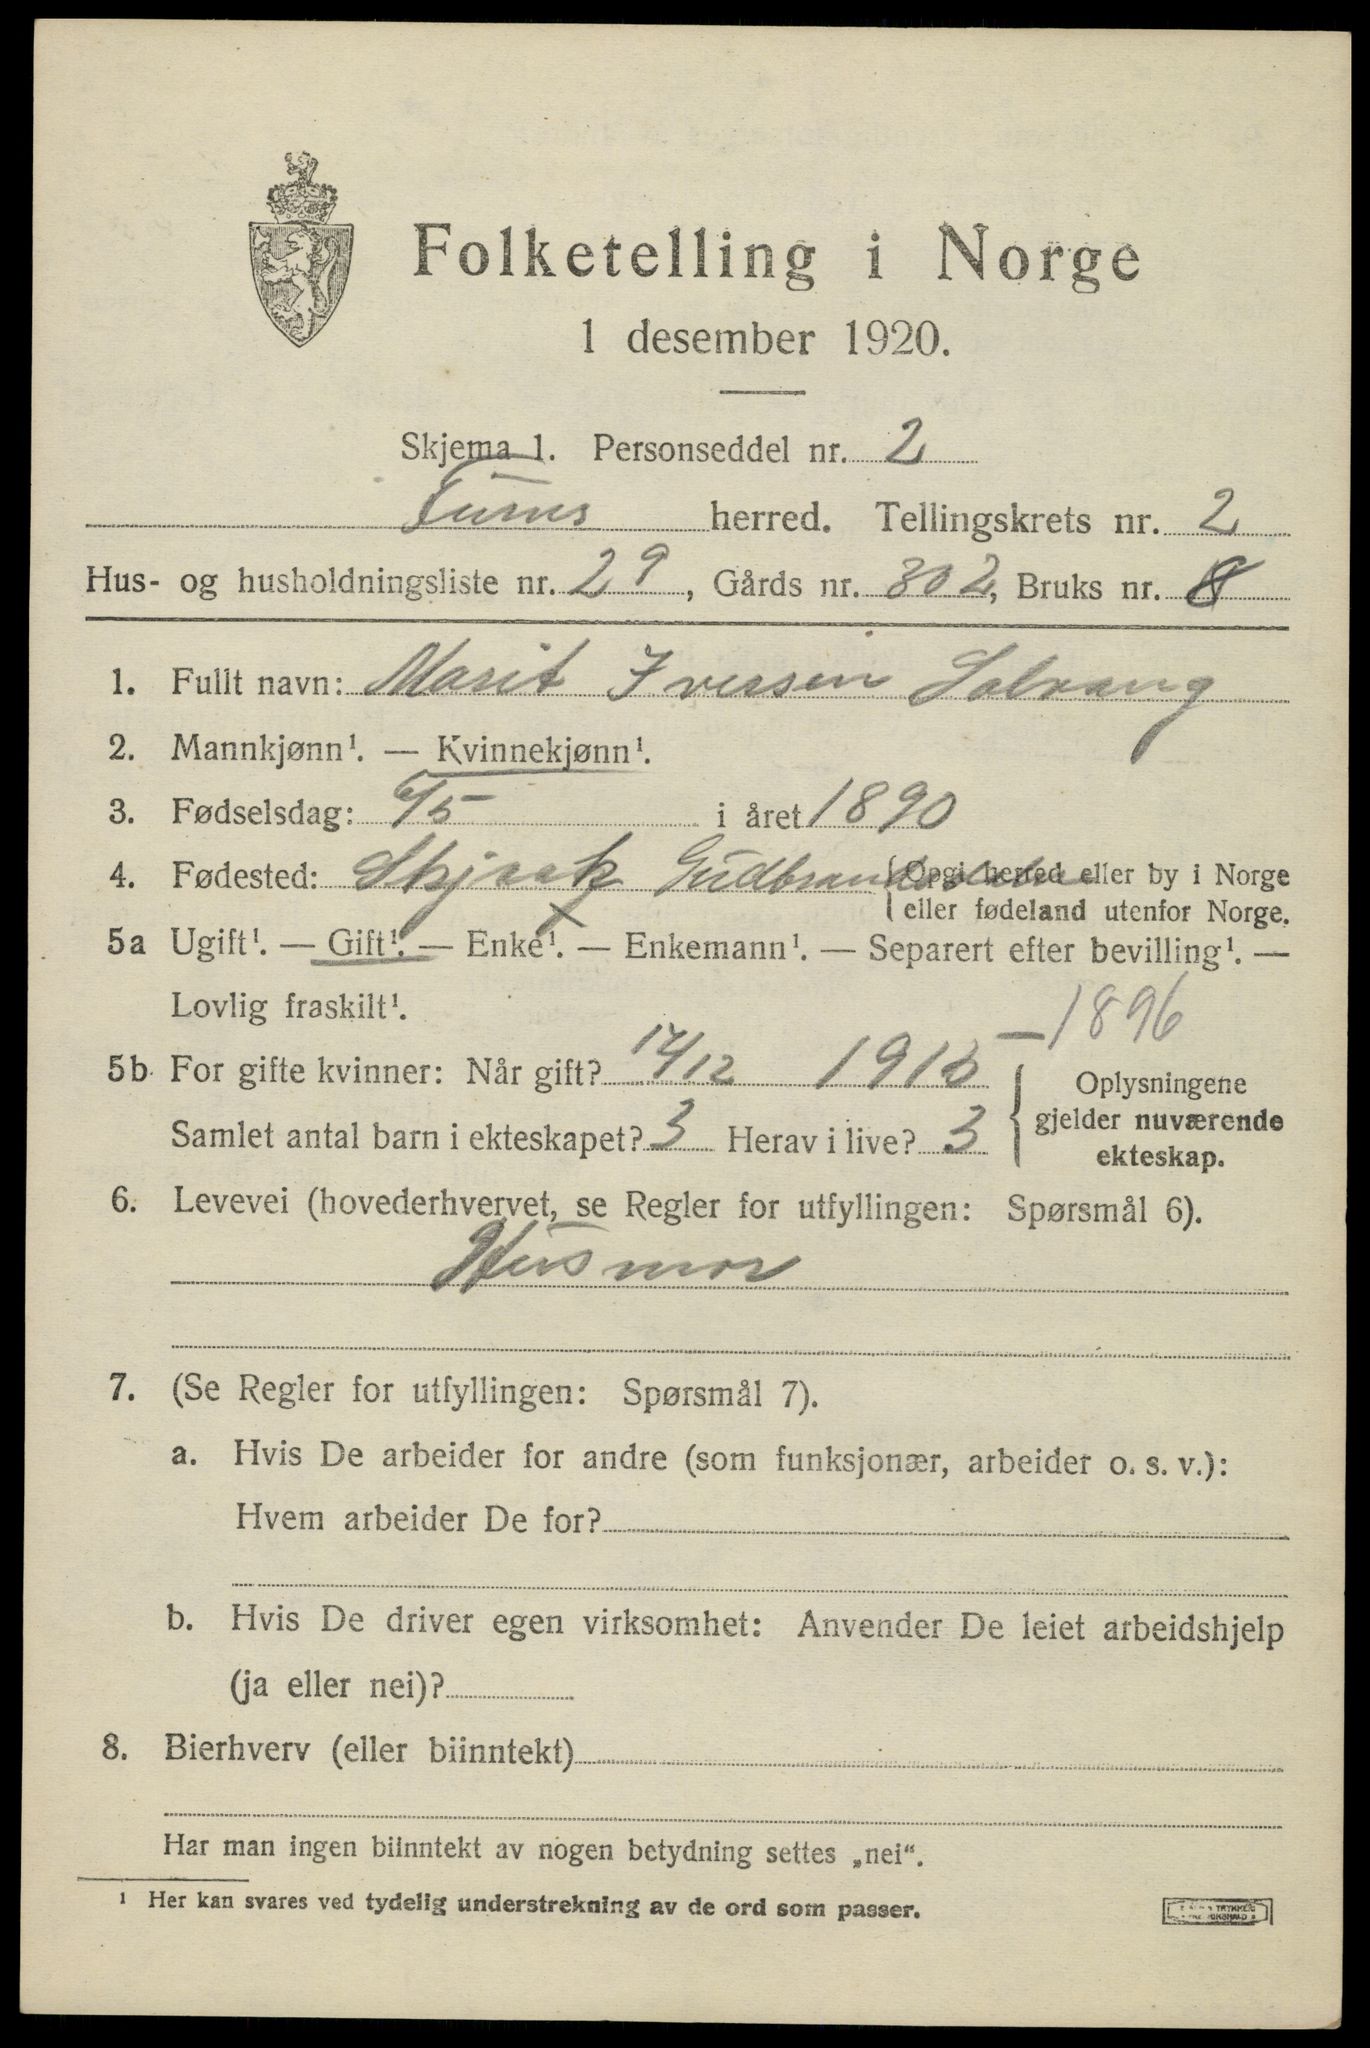 Folketelling i Norge
1 desember 1920.
Skjema 1. Personseddel nr. 2
Furnes herred. Tellingskrets nr. 2
Hus- og husholdningsliste nr. 29, Gårds nr. 302, Bruks nr. 8
1. Fullt navn: Marit Iversen Solvang
2. Mannkjønn¹. — Kvinnekjønn¹.
3. Fødselsdag: 6/5 i året 1890
4. Fødested: Skjaak Gudbrandsdalen {Opgi herred eller by i Norge
eller fødeland utenfor Norge.
5a Ugift¹. — Gift¹. — Enke¹. — Enkemann¹. — Separert efter bevilling¹. —
Lovlig fraskilt¹.
— 1896
5b For gifte kvinner: Når gift? 14/12 1913 { Oplysningene
gjelder nuværende
Samlet antal barn i ekteskapet? 3 Herav i live? 3
ekteskap.
6. Levevei (hovederhvervet, se Regler for utfyllingen: Spørsmål 6).
Husmor
7. (Se Regler for utfyllingen: Spørsmål 7).
a. Hvis De arbeider for andre (som funksjonær, arbeider o. s. v.):
Hvem arbeider De for?
b. Hvis De driver egen virksomhet: Anvender De leiet arbeidshjelp
(ja eller nei)?
8. Bierhverv (eller biinntekt)
Har man ingen biinntekt av nogen betydning settes „nei“.
¹ Her kan svares ved tydelig understrekning av de ord som passer.